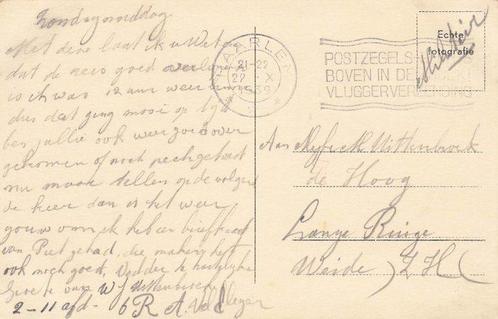 Zondagmiddag
Met deze laat ik u weten
dat de reis goed verlopen
is ik was 12 uur weer binnen
dus dat ging mooi op tijd
ben jullie ook weer goed over
gekomen of noch pech gehad
nu maar stellen op de volgen
de keer dan is het weer
gouw om ik heb een briefkaart
van Piet gehad, die makery het
ook noch goed,
Groete van W J Uittenbroek
2-11 afd- 6 R.A.
HAARLEM
21-22
22 X
39
POSTZEGELS
BOVEN IN DE
VLUGGER VER
Echte
fotografie
Militair
Aan Mejfr. Uittenbroek
de Hoog
Lange Ruige
Weide (Z H)